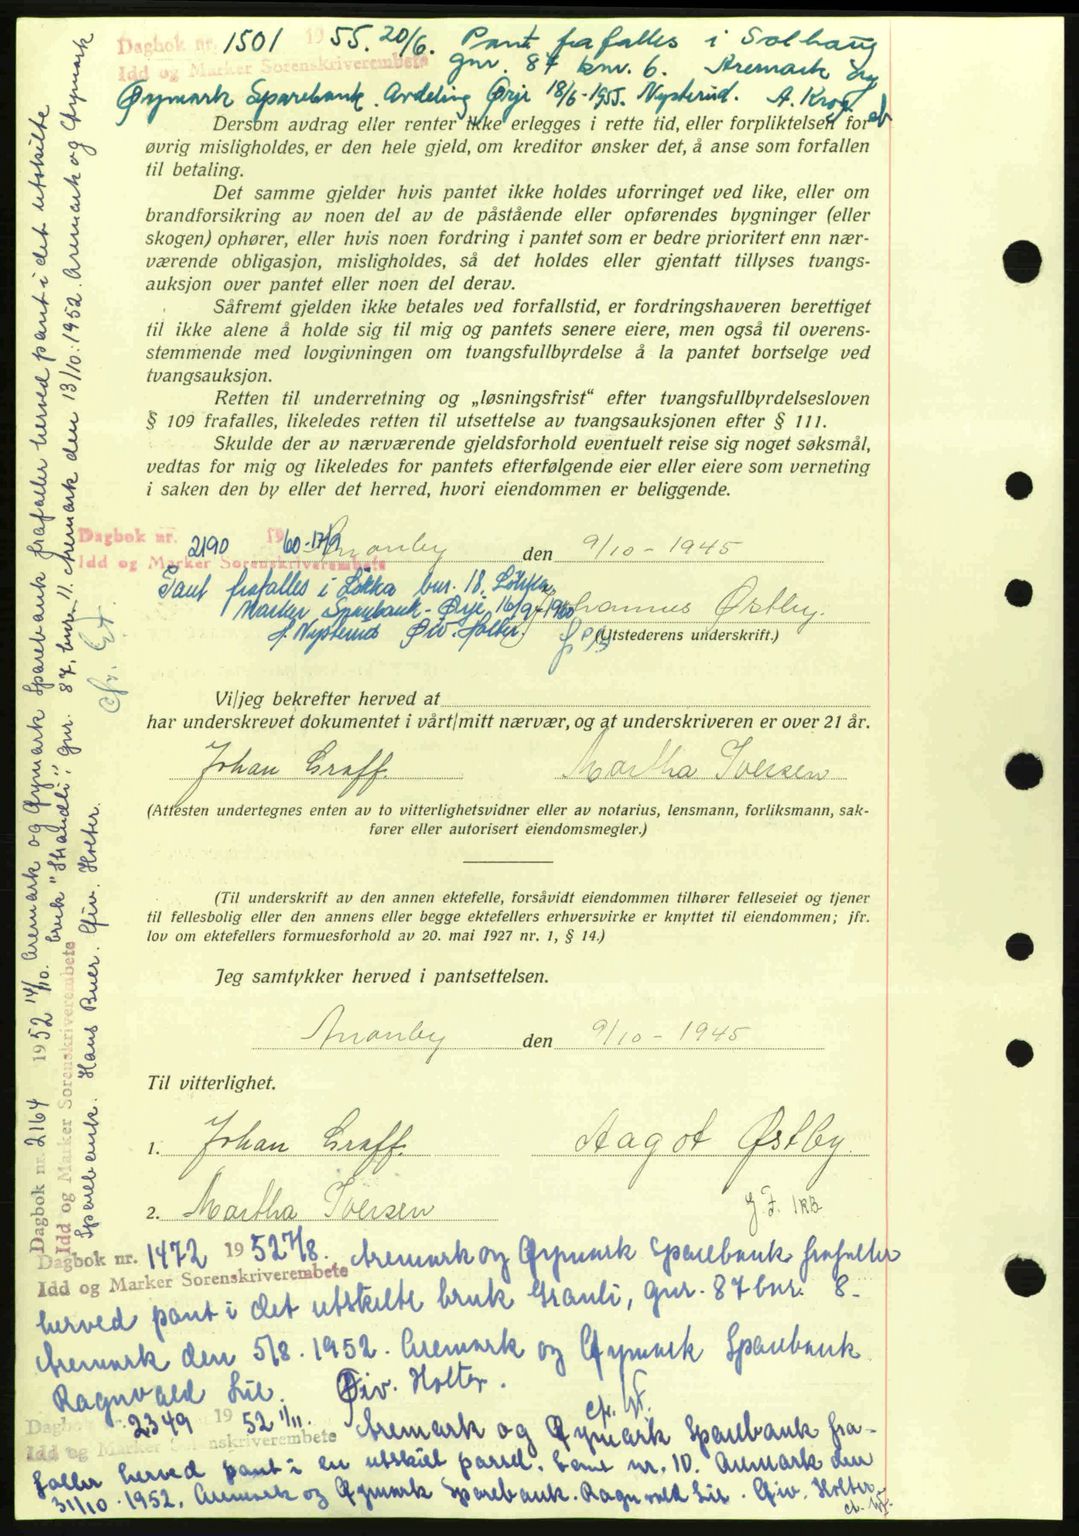 Dagbok nr. 1501 1955. 20/6. Pant frafalles i Solhaug
Idd og Marker Sorenskriverembete gnr. 87 bnr. 6. Aremark og
Øymark Sparebank. Avdeling Ørje 18/6-1955. Nysterud. A. Krog
Dersom avdrag eller renter ikke erlegges i rette tid, eller forpliktelsen for
øvrig misligholdes, er den hele gjeld, om kreditor ønsker det, å anse som forfallen
til betaling.
Det samme gjelder hvis pantet ikke holdes uforringet ved like, eller om
brandforsikring av noen del av de påstående eller opførendes bygninger (eller
skogen) ophører, eller hvis noen fordring i pantet som er bedre prioritert enn nær-
værende obligasjon, misligholdes, så det holdes eller gjentatt tillyses tvangs-
auksjon over pantet eller noen del derav.
Såfremt gjelden ikke betales ved forfallstid, er fordringshaveren berettiget
til ikke alene å holde sig til mig og pantets senere eiere, men også til overens-
stemmende med lovgivningen om tvangsfullbyrdelse å la pantet bortselge ved
tvangsauksjon.
Retten til underretning og „løsningsfrist“ efter tvangsfullbyrdelsesloven
§ 109 frafalles, likeledes retten til utsettelse av tvangsauksjonen efter § 111.
Skulde der av nærværende gjeldsforhold eventuelt reise sig noget søksmål,
vedtas for mig og likeledes for pantets efterfølgende eier eller eiere som verneting
i saken den by eller det herred, hvori eiendommen er beliggende.
Dagbok nr. 2190 1960-17/9
Idd og Marker Sorenskriverembete
den 9/10-1945
Pant frafalles i Løkka bnr. 18. Løkka
Marker Sparebank - Ørje 16/9-1960
H. Nysterud Øiv. Holter.
Johannes Østby.
(Utstederens underskrift.)
Vi/jeg bekrefter herved at
har underskrevet dokumentet i vårt/mitt nærvær, og at underskriveren er over 21 år.
Johan Graff. Martha Iversen
(Attesten undertegnes enten av to vitterlighetsvidner eller av notarius, lensmann, forliksmann, sak-
fører eller autorisert eiendomsmegler.)
(Til underskrift av den annen ektefelle, forsåvidt eiendommen tilhører felleseiet og tjener
til fellesbolig eller den annens eller begge ektefellers erhversvirke er knyttet til eiendommen; jfr.
lov om ektefellers formuesforhold av 20. mai 1927 nr. 1, § 14.)
Jeg samtykker herved i pantsettelsen.
den 9/10-1945
Til vitterlighet.
1. Johan Graff. Aagot Østby.
2. Martha Iversen
Dagbok nr. 1472 1952 7/8. Aremark og Øymark Sparebank frafaller
Idd og Marker Sorenskriverembete
herved pant i det utskilte bruk Granli, gnr. 87 bnr. 8.
Aremark den 5/8.1952. Aremark og Øymark Sparebank
Ragnvald Lie. Øiv. Holter.
Dagbok nr. 2349 1952 1/11. Aremark og Øymark Sparebank fra-
Idd og Marker Sorenskriverembete
faller herved pant i en utskilt parsel. bnr. 10. Aremark den
31/10-1952. Aremark og Øymark Sparebank. Ragnvald Lie. Øiv. Holter.
Dagbok nr. 2164 1952 14/10. Aremark og Øymark Sparebank frafaller herved pant i det utskilte
Idd og Marker Sorenskriverembete bruk "Strandli", gnr. 87, bnr. 11. Aremark den 13/10.1952. Aremark og Øymark
Sparebank. Hans Buer. Øiv. Holter.